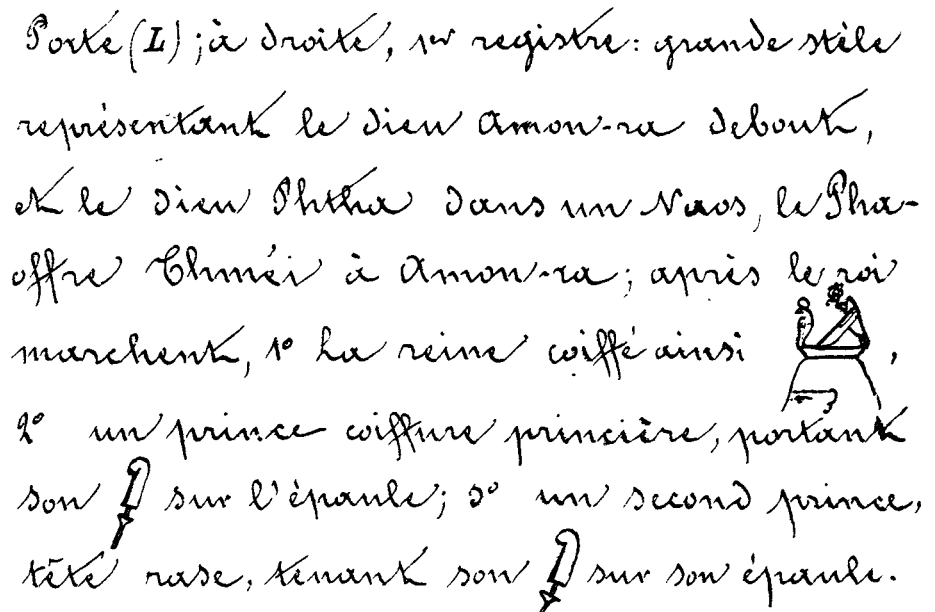 Porte (L); à droite, 1er registre: grande stèle
représentant le dieu Amon-ra debout,
et le dieu Phtha dans un Naos, le Pha-
offre Thméi à Amon-ra; après le roi
marchent, 1° La reine coiffé ainsi ,
2° un prince coiffure princière, portant
son sur l'épaule; 3° un second prince,
tête rase, tenant son sur son épaule.